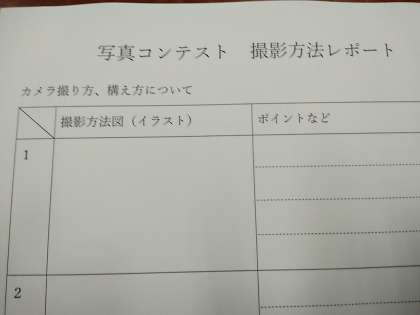 写真コンテスト　撮影方法レポート
カメラ撮り方、構え方について
撮影方法図（イラスト）
ポイントなど
1
2